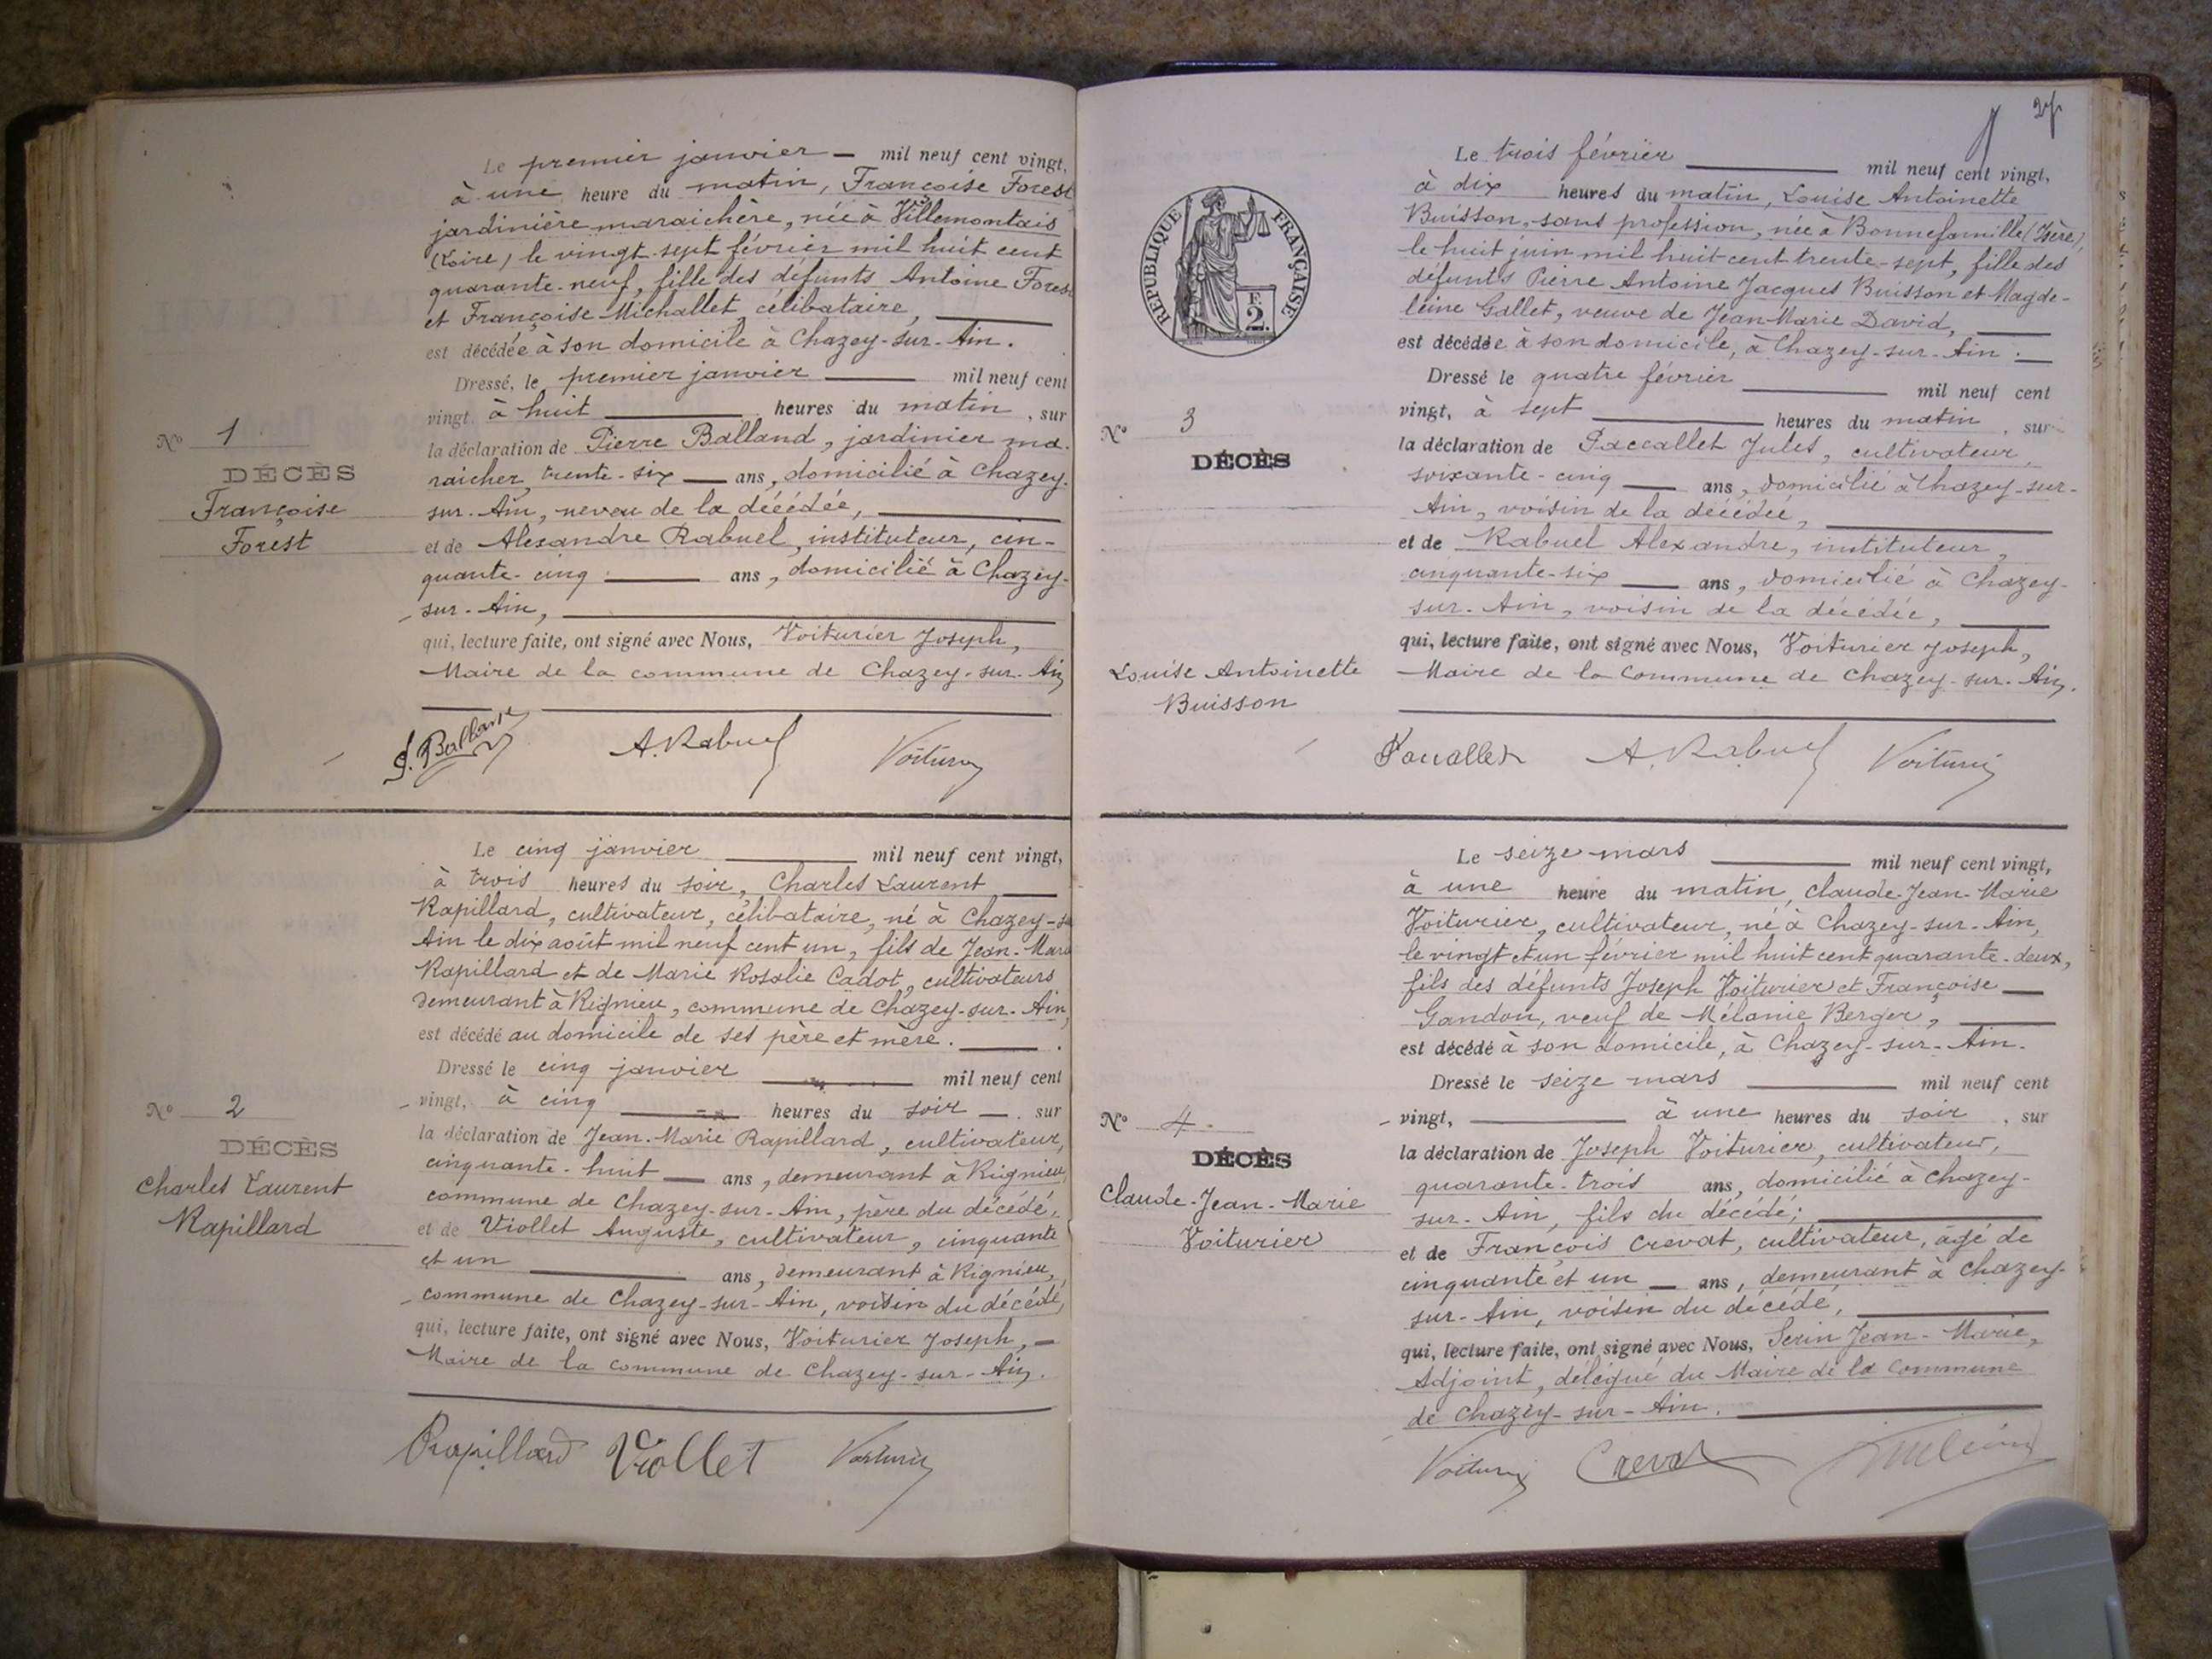 Le premier janvier — mil neuf cent vingt,
à une heure du matin, Françoise Forest
jardinière maraichère, née à Villemontais
(Loire) le vingt-sept février mil huit cent
quarante-neuf, fille des défunts Antoine Forest
et Françoise Michallet, célibataire,
est décédée à son domicile à Chazey-sur-Ain.
Dressé, le premier janvier mil neuf cent
vingt, à huit heures du matin, sur
la déclaration de Pierre Balland, jardinier ma-
raicher, trente-six ans, domicilié à Chazey-
sur-Ain, neveu de la décédée,
et de Alexandre Rabuel, instituteur, cin-
quante-cinq ans, domicilié à Chazey-
sur-Ain,
qui, lecture faite, ont signé avec Nous, Voiturier Joseph,
Maire de la commune de Chazey-sur-Ain
N° 1
DÉCÈS
Françoise
Forest
P. Balland A. Rabuel Voiturier
Le cinq janvier mil neuf cent vingt,
à trois heures du soir, Charles Laurent
Rapillard, cultivateur, célibataire, né à Chazey-su
Ain le dix août mil neuf cent un, fils de Jean-Marie
Rapillard et de Marie Rosalie Cadot, cultivateurs
demeurant à Rignieu, commune de Chazey-sur-Ain,
est décédé au domicile de ses père et mère.
Dressé le cinq janvier mil neuf cent
vingt, à cinq heures du soir —, sur
la déclaration de Jean-Marie Rapillard, cultivateur,
cinquante-huit ans, demeurant à Rignieu,
commune de Chazey-sur-Ain, père du décédé,
et de Viollet Auguste, cultivateur, cinquante
et un ans, demeurant à Rignieu,
commune de Chazey-sur-Ain, voisin du décédé,
qui, lecture faite, ont signé avec Nous, Voiturier Joseph, —
Maire de la commune de Chazey-sur-Ain.
N° 2
DÉCÈS
Charles Laurent
Rapillard
Rapillard Viollet Voiturier
27
RÉPUBLIQUE FRANÇAISE
F.
2.
Le trois février mil neuf cent vingt,
à dix heures du matin, Louise Antoinette
Buisson, sans profession, née à Bonnefamille (Isère),
le huit juin mil huit-cent trente-sept, fille des
défunts Pierre Antoine Jacques Buisson et Magde-
leine Gallet, veuve de Jean-Marie David,
est décédée à son domicile, à Chazey-sur-Ain.
Dressé le quatre février mil neuf cent
vingt, à sept heures du matin, sur
la déclaration de Paccallet Jules, cultivateur,
soixante-cinq ans, domicilié à Chazey-sur-
Ain, voisin de la décédée,
et de Rabuel Alexandre, instituteur,
cinquante-six ans, domicilié à Chazey-
sur-Ain, voisin de la décédée,
qui, lecture faite, ont signé avec Nous, Voiturier Joseph,
Maire de la Commune de Chazey-sur-Ain.
N° 3
DÉCÈS
Louise Antoinette
Buisson
Paccallet A. Rabuel Voiturier
Le seize mars mil neuf cent vingt,
à une heure du matin, Claude-Jean-Marie
Voiturier, cultivateur, né à Chazey-sur-Ain,
le vingt et un février mil huit cent quarante-deux,
fils des défunts Joseph Voiturier et Françoise
Gandon, veuf de Mélanie Berger,
est décédé à son domicile, à Chazey-sur-Ain.
Dressé le seize mars mil neuf cent
vingt, à une heures du soir, sur
la déclaration de Joseph Voiturier, cultivateur,
quarante-trois ans, domicilié à Chazey-
sur-Ain, fils du décédé;
et de François Crevat, cultivateur, âgé de
cinquante et un ans, demeurant à Chazey-
sur-Ain, voisin du décédé,
qui, lecture faite, ont signé avec Nous, Serin Jean-Marie,
Adjoint, délégué du Maire de la Commune
de Chazey-sur-Ain.
N° 4.
DÉCÈS
Claude-Jean-Marie
Voiturier
Voiturier Crevat